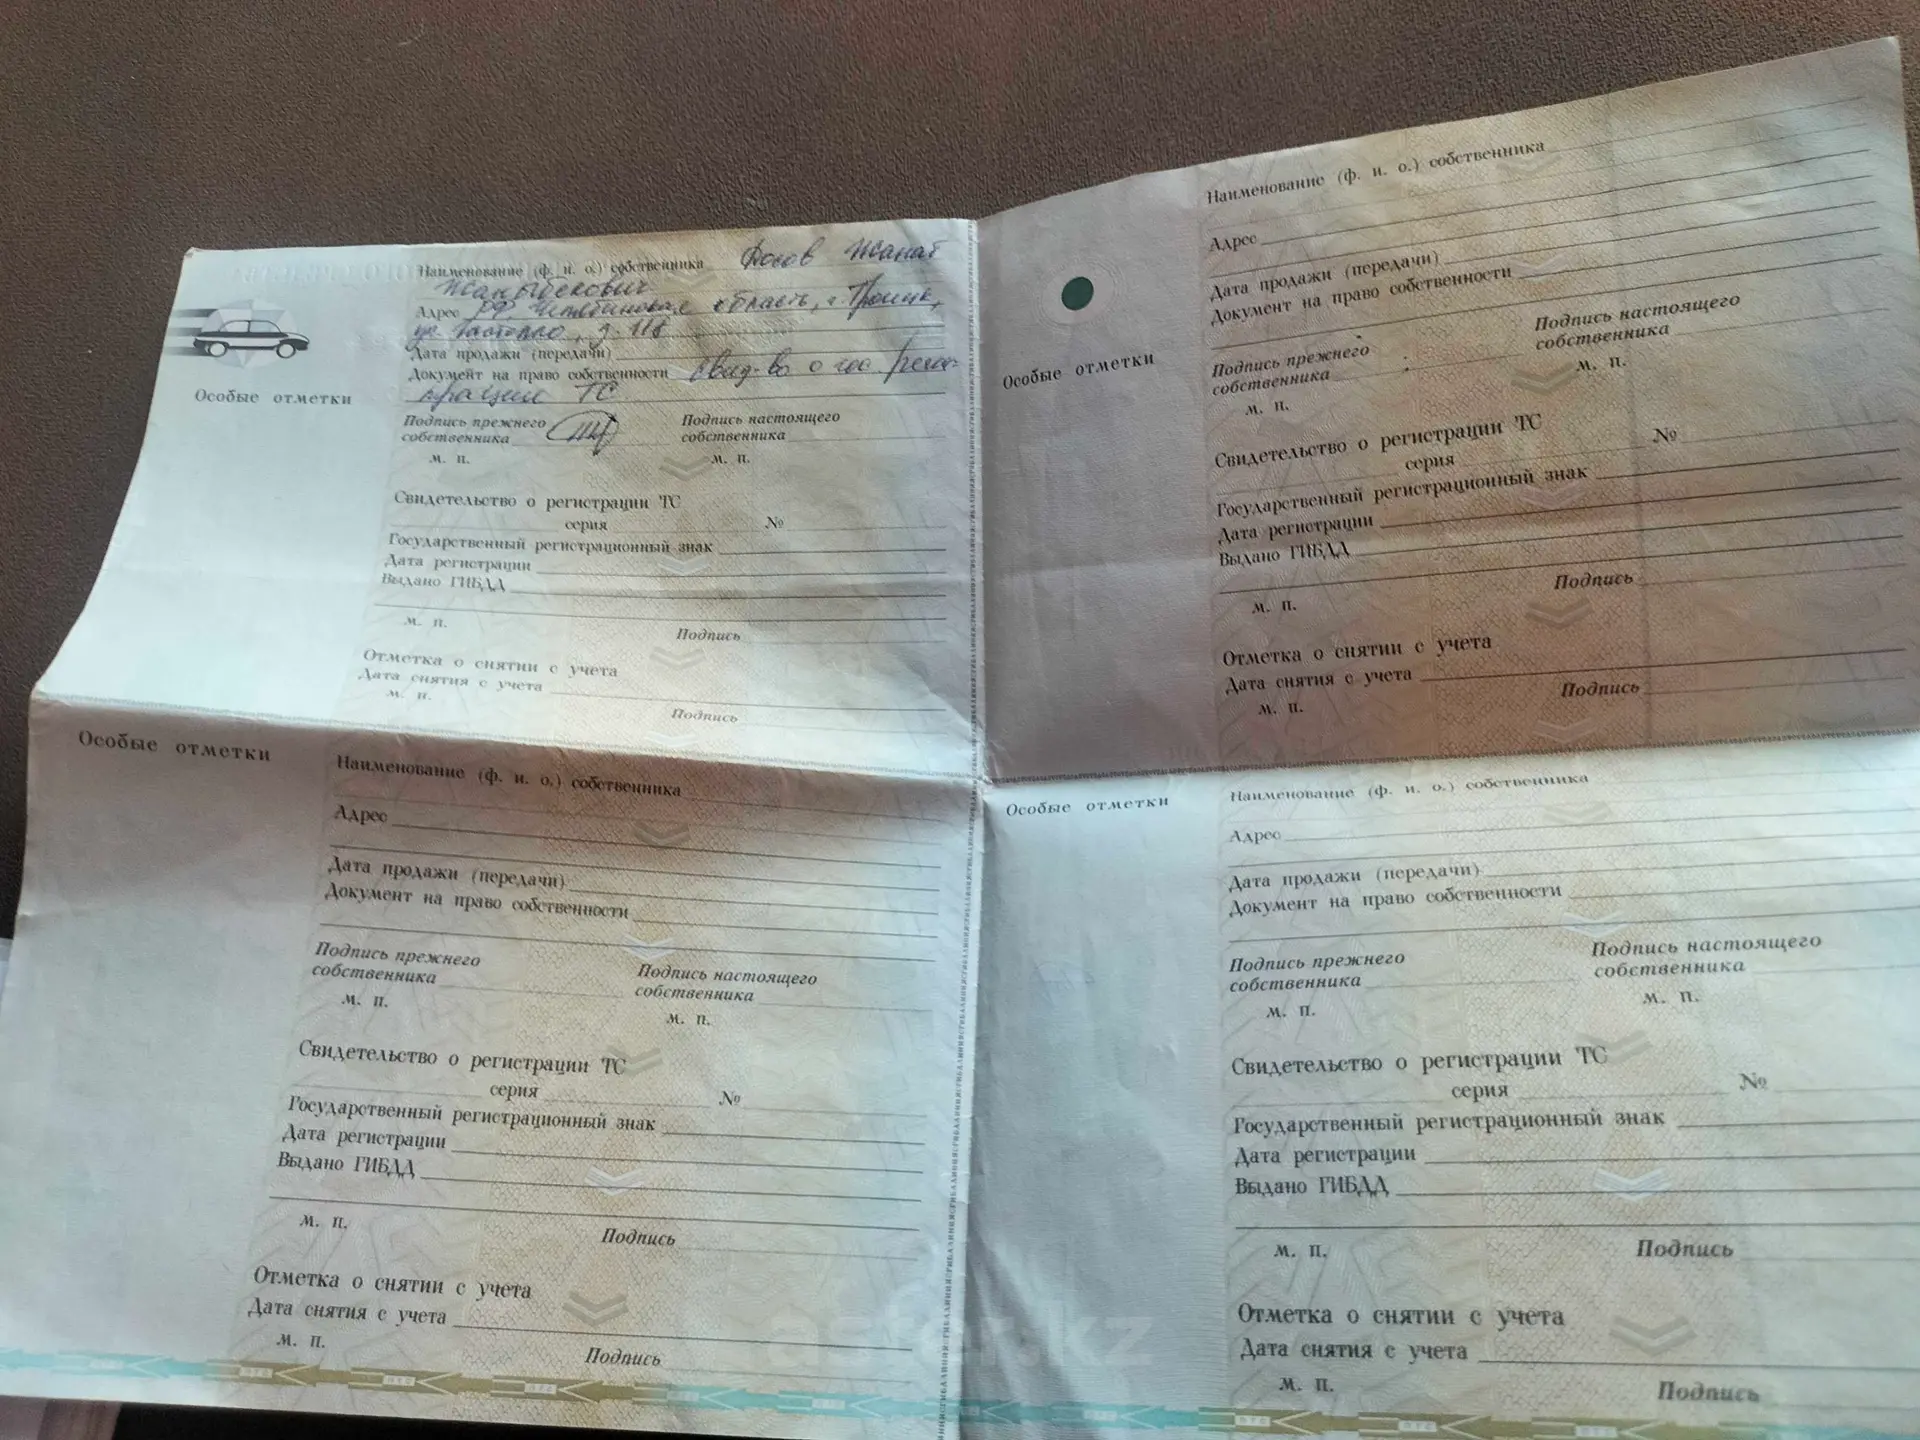 Наименование (ф. и. о.) собственника Досов Жанат
Жаныбекович
Адрес РФ, Челябинская область, г. Троицк,
ул. Гастелло, д. 118
Дата продажи (передачи)
Документ на право собственности свид-во о гос. регист-
рации ТС
Особые отметки
Подпись прежнего
собственника
Подпись настоящего
собственника
м. п.
м. п.
Свидетельство о регистрации ТС
серия №
Государственный регистрационный знак
Дата регистрации
Выдано ГИБДД
м. п.
Подпись
Отметка о снятии с учета
Дата снятия с учета
м. п.
Подпись
Особые отметки
Наименование (ф. и. о.) собственника
Адрес
Дата продажи (передачи)
Документ на право собственности
Подпись прежнего
собственника
Подпись настоящего
собственника
м. п.
м. п.
Свидетельство о регистрации ТС
серия №
Государственный регистрационный знак
Дата регистрации
Выдано ГИБДД
Подпись
м. п.
Отметка о снятии с учета
Дата снятия с учета
Подпись
м. п.
Особые отметки
Наименование (ф. и. о.) собственника
Адрес
Дата продажи (передачи)
Документ на право собственности
Подпись прежнего
собственника
Подпись настоящего
собственника
м. п.
м. п.
Свидетельство о регистрации ТС
серия №
Государственный регистрационный знак
Дата регистрации
Выдано ГИБДД
м. п.
Подпись
Отметка о снятии с учета
Дата снятия с учета
м. п.
Подпись
Особые отметки
Наименование (ф. и. о.) собственника
Адрес
Дата продажи (передачи)
Документ на право собственности
Подпись прежнего
собственника
Подпись настоящего
собственника
м. п.
м. п.
Свидетельство о регистрации ТС
серия №
Государственный регистрационный знак
Дата регистрации
Выдано ГИБДД
м. п.
Подпись
Отметка о снятии с учета
Дата снятия с учета
м. п.
Подпись